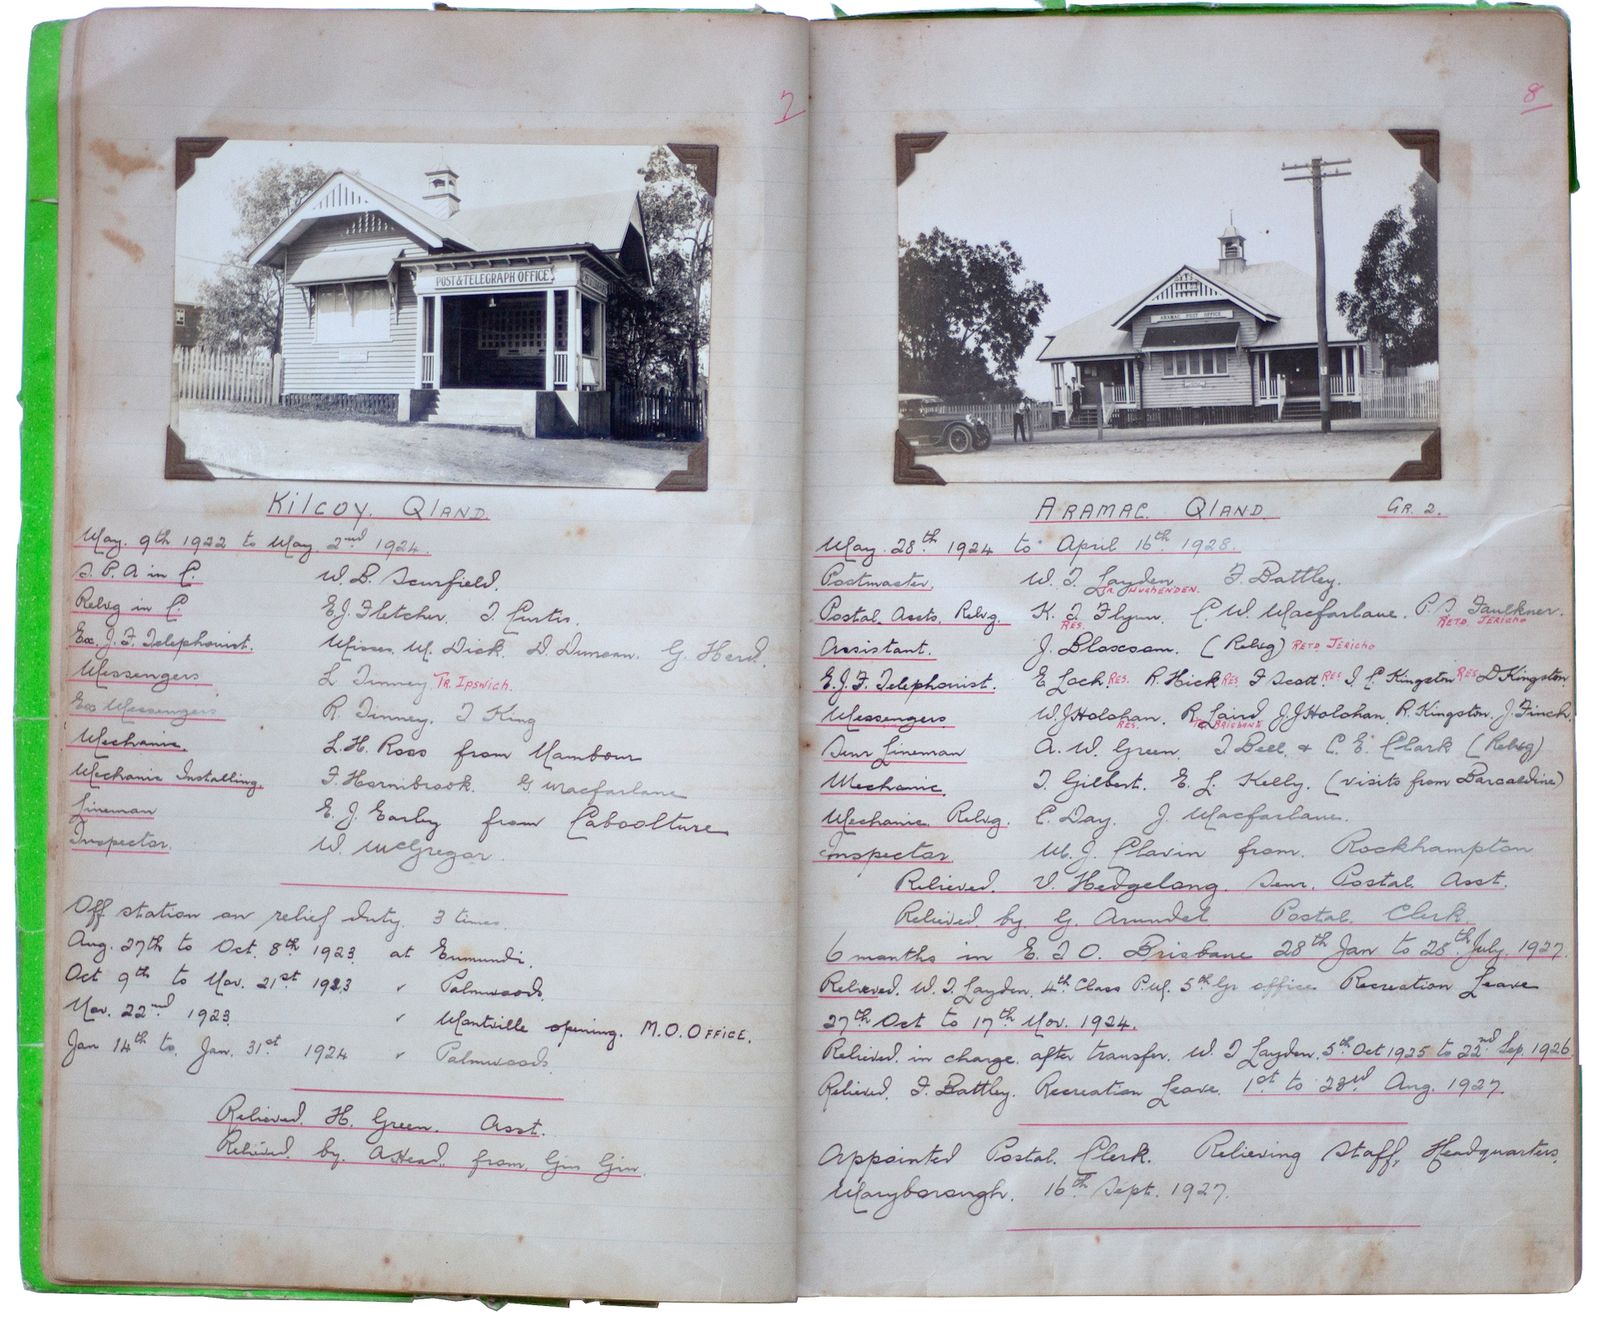 7
POST & TELEGRAPH OFFICE
Kilcoy. Qland.
May. 9th 1922 to May 2nd 1924.
S. P. A in C. W. B. Scurfield.
Relvg in C. E.J. Fletcher. T Curtis.
Ex. J. F. Telephonist. Misses M. Dick. D. Duncan. G. Herd.
Messengers L Tinney Tr. Ipswich.
Ex Messengers R. Tinney. T King
Mechanic. L. H. Ross from Nambour
Mechanic Installing. F Hornibrook. G. Macfarlane
Lineman E. J. Earley from Caboolture
Inspector. W. McGregor.
Off station on relief duty. 3 times.
Aug. 27th to Oct. 8th 1923. at Eumundi.
Oct 9th to Nov. 21st 1923 " Palmwoods.
Nov. 22nd 1923. " Montville opening. M.O. OFFICE.
Jan 14th to Jan. 31st 1924 " Palmwoods.
Relieved H. Green. Asst.
Relieved by. A Head. from Gin Gin.
8
ARAMAC POST OFFICE
ARAMAC. QLAND. GR. 2.
May. 28th 1924 to April 16th 1928.
Postmaster. W. T. Layden F. Battley.
TR. HUGHENDEN.
Postal Assts. Relvg. K. T Flynn. C. W. Macfarlane. P. S. Faulkner.
RES. RETD JERICHO
Assistant. J. Bloxsom. (Relvg) RETD JERICHO
E.J.F. Telephonist. E Loch. RES. R. Hick RES. F Scott RES J. C Kingston RES D Kingston.
Messengers W.J Holohan. R. Laird J.J Holohan. R. Kingston. J. Finch.
RES. TR. BRISBANE
Senr Lineman A. W. Green. T Bell & C. E. Clark (Relvg)
Mechanic. T. Gilbert. E. L. Kelly. (visits from Barcaldine)
Mechanic. Relvg. C. Day. J. Macfarlane.
Inspector M. J. Clavin from. Rockhampton
Relieved. V. Hedgelong. Senr. Postal. Asst.
Relieved by G. Arundel Postal. Clerk.
6 months in E. T O. Brisbane 28th Jan to 28th July. 1927.
Relieved. W. T. Layden. 4th Class P.M. 5th Gr office Recreation Leave
27th Oct to 17th Nov. 1924.
Relieved. in charge. after transfer. W. T Layden. 5th Oct 1925 to 22nd Sep. 1926.
Relieved. F. Battley. Recreation Leave. 1st to 23rd Aug. 1927.
Appointed Postal. Clerk. Relieving Staff, Headquarters,
Maryborough. 16th Sept. 1927.